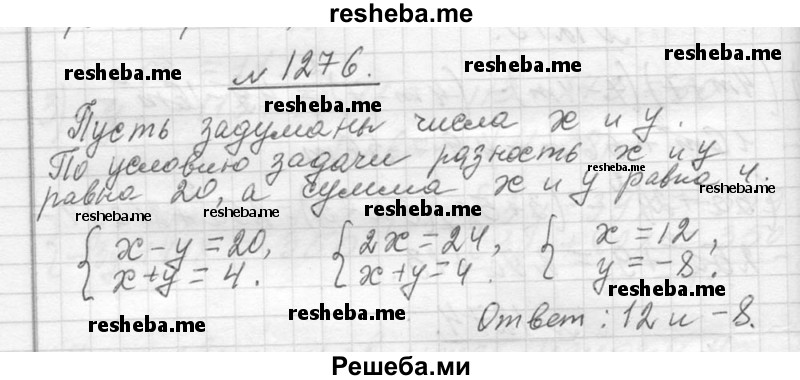 resheba.me
№ 1276.
resheba.me resheba.me
resheba.me
Пусть задуманы числа x и y.
По условию задачи разность x и y
resheba.me
равна 20, а сумма x и y равна 4.
resheba.me resheba.me resheba.me
{ x - y = 20, { 2x = 24, { x = 12,
x + y = 4. x + y = 4. y = -8.
resheba.me
resheba.me resheba.me Ответ: 12 и -8.
resheba.me
Решеба.ми